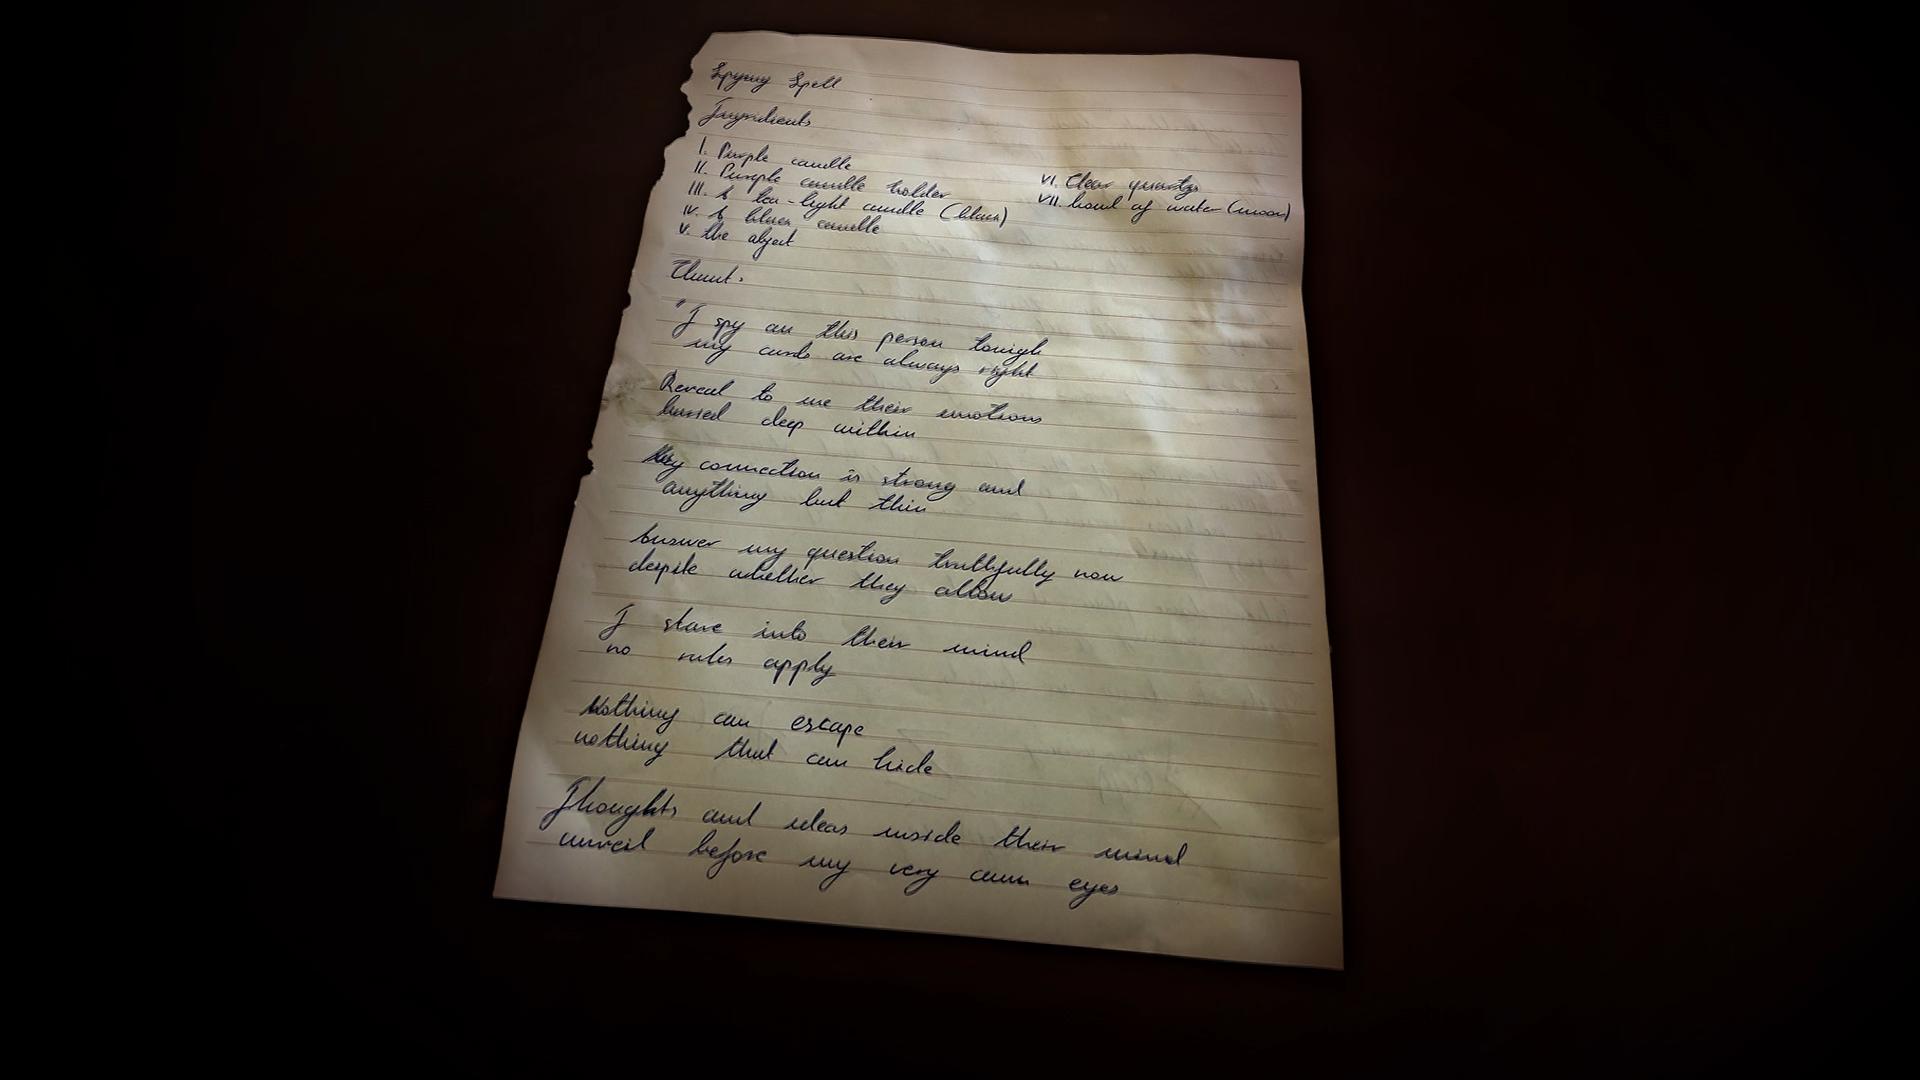 Spying Spell
Ingridients
I. Purple candle
II. Purple candle holder
III. A tea-light candle (black)
IV. A black candle
V. the object
VI. Clear quartz
VII. bowl of water (moon)
Chant:
"I spy on this person tonigh
my cards are always right
Reveal to me their emotions
buried deep within
My connection is strong and
anything but thin
Answer my question truthfully now
despite whether they allow
I stare into their mind
no rules apply
Nothing can escape
nothing that can hide
Thoughts and ideas inside their mind
unveil before my very own eyes